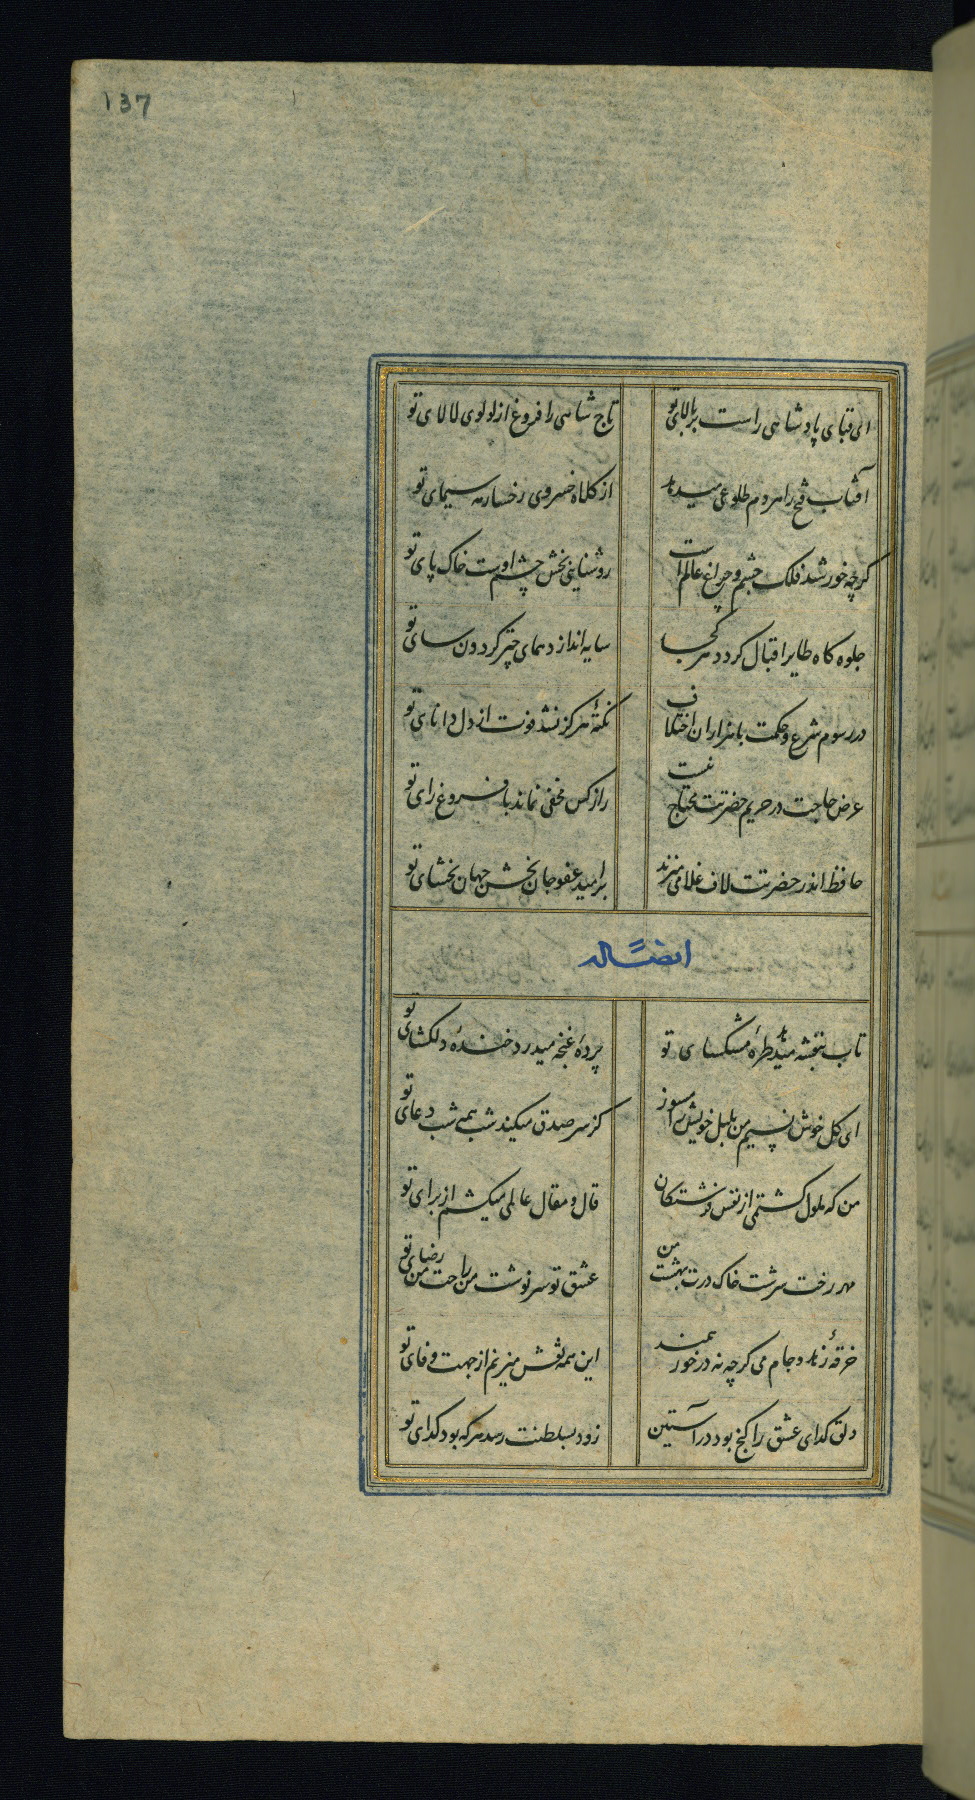 137
ای قبای پادشاهی راست بر بالای تو تاج شاهی را فروغ از لولوی لالای تو
آفتاب فتح را هر دم طلوعی میدهد از کلاه خسروی رخسار مه سیمای تو
کرچه خورشید فلک چشم و چراغ عالم است روشنایی بخش چشم اوست خاک پای تو
جلوه کاه طایر اقبال کردد هر کجا سایه اندازد همای چتر کردون سای تو
در رسوم شرع و حکمت با هزاران اختلاف نکتهٔ هرکز نشد فوت از دل دانای تو
عرض حاجت در حریم حضرتت محتاج نیست راز کس مخفی نماند با فروغ رای تو
حافظ اندر حضرتت لاف غلامی میزند بر امید عفو جان بخش جهان بخشای تو
ایضاً له
تاب بنفشه میدهد طرهٔ مشکسای تو پردهٔ غنچه میدرد خندهٔ دلکشای تو
ای کل خوش نسیم من بلبل خویش را مسوز کز سر صدق میکند شب همه شب دعای تو
من که ملول کشتمی از نفس فرشتکان قال و مقال عالمی میکشم از برای تو
مهر رخت سرشت من خاک درت بهشت من عشق تو سرنوشت من راحت من رضای تو
خرقهٔ زهد و جام می کرچه نه در خور همند این همه نقش میزنم از جهت وفای تو
دلق کدای عشق را کنج بود در آستین زود بسلطنت رسد هر که بود کدای تو